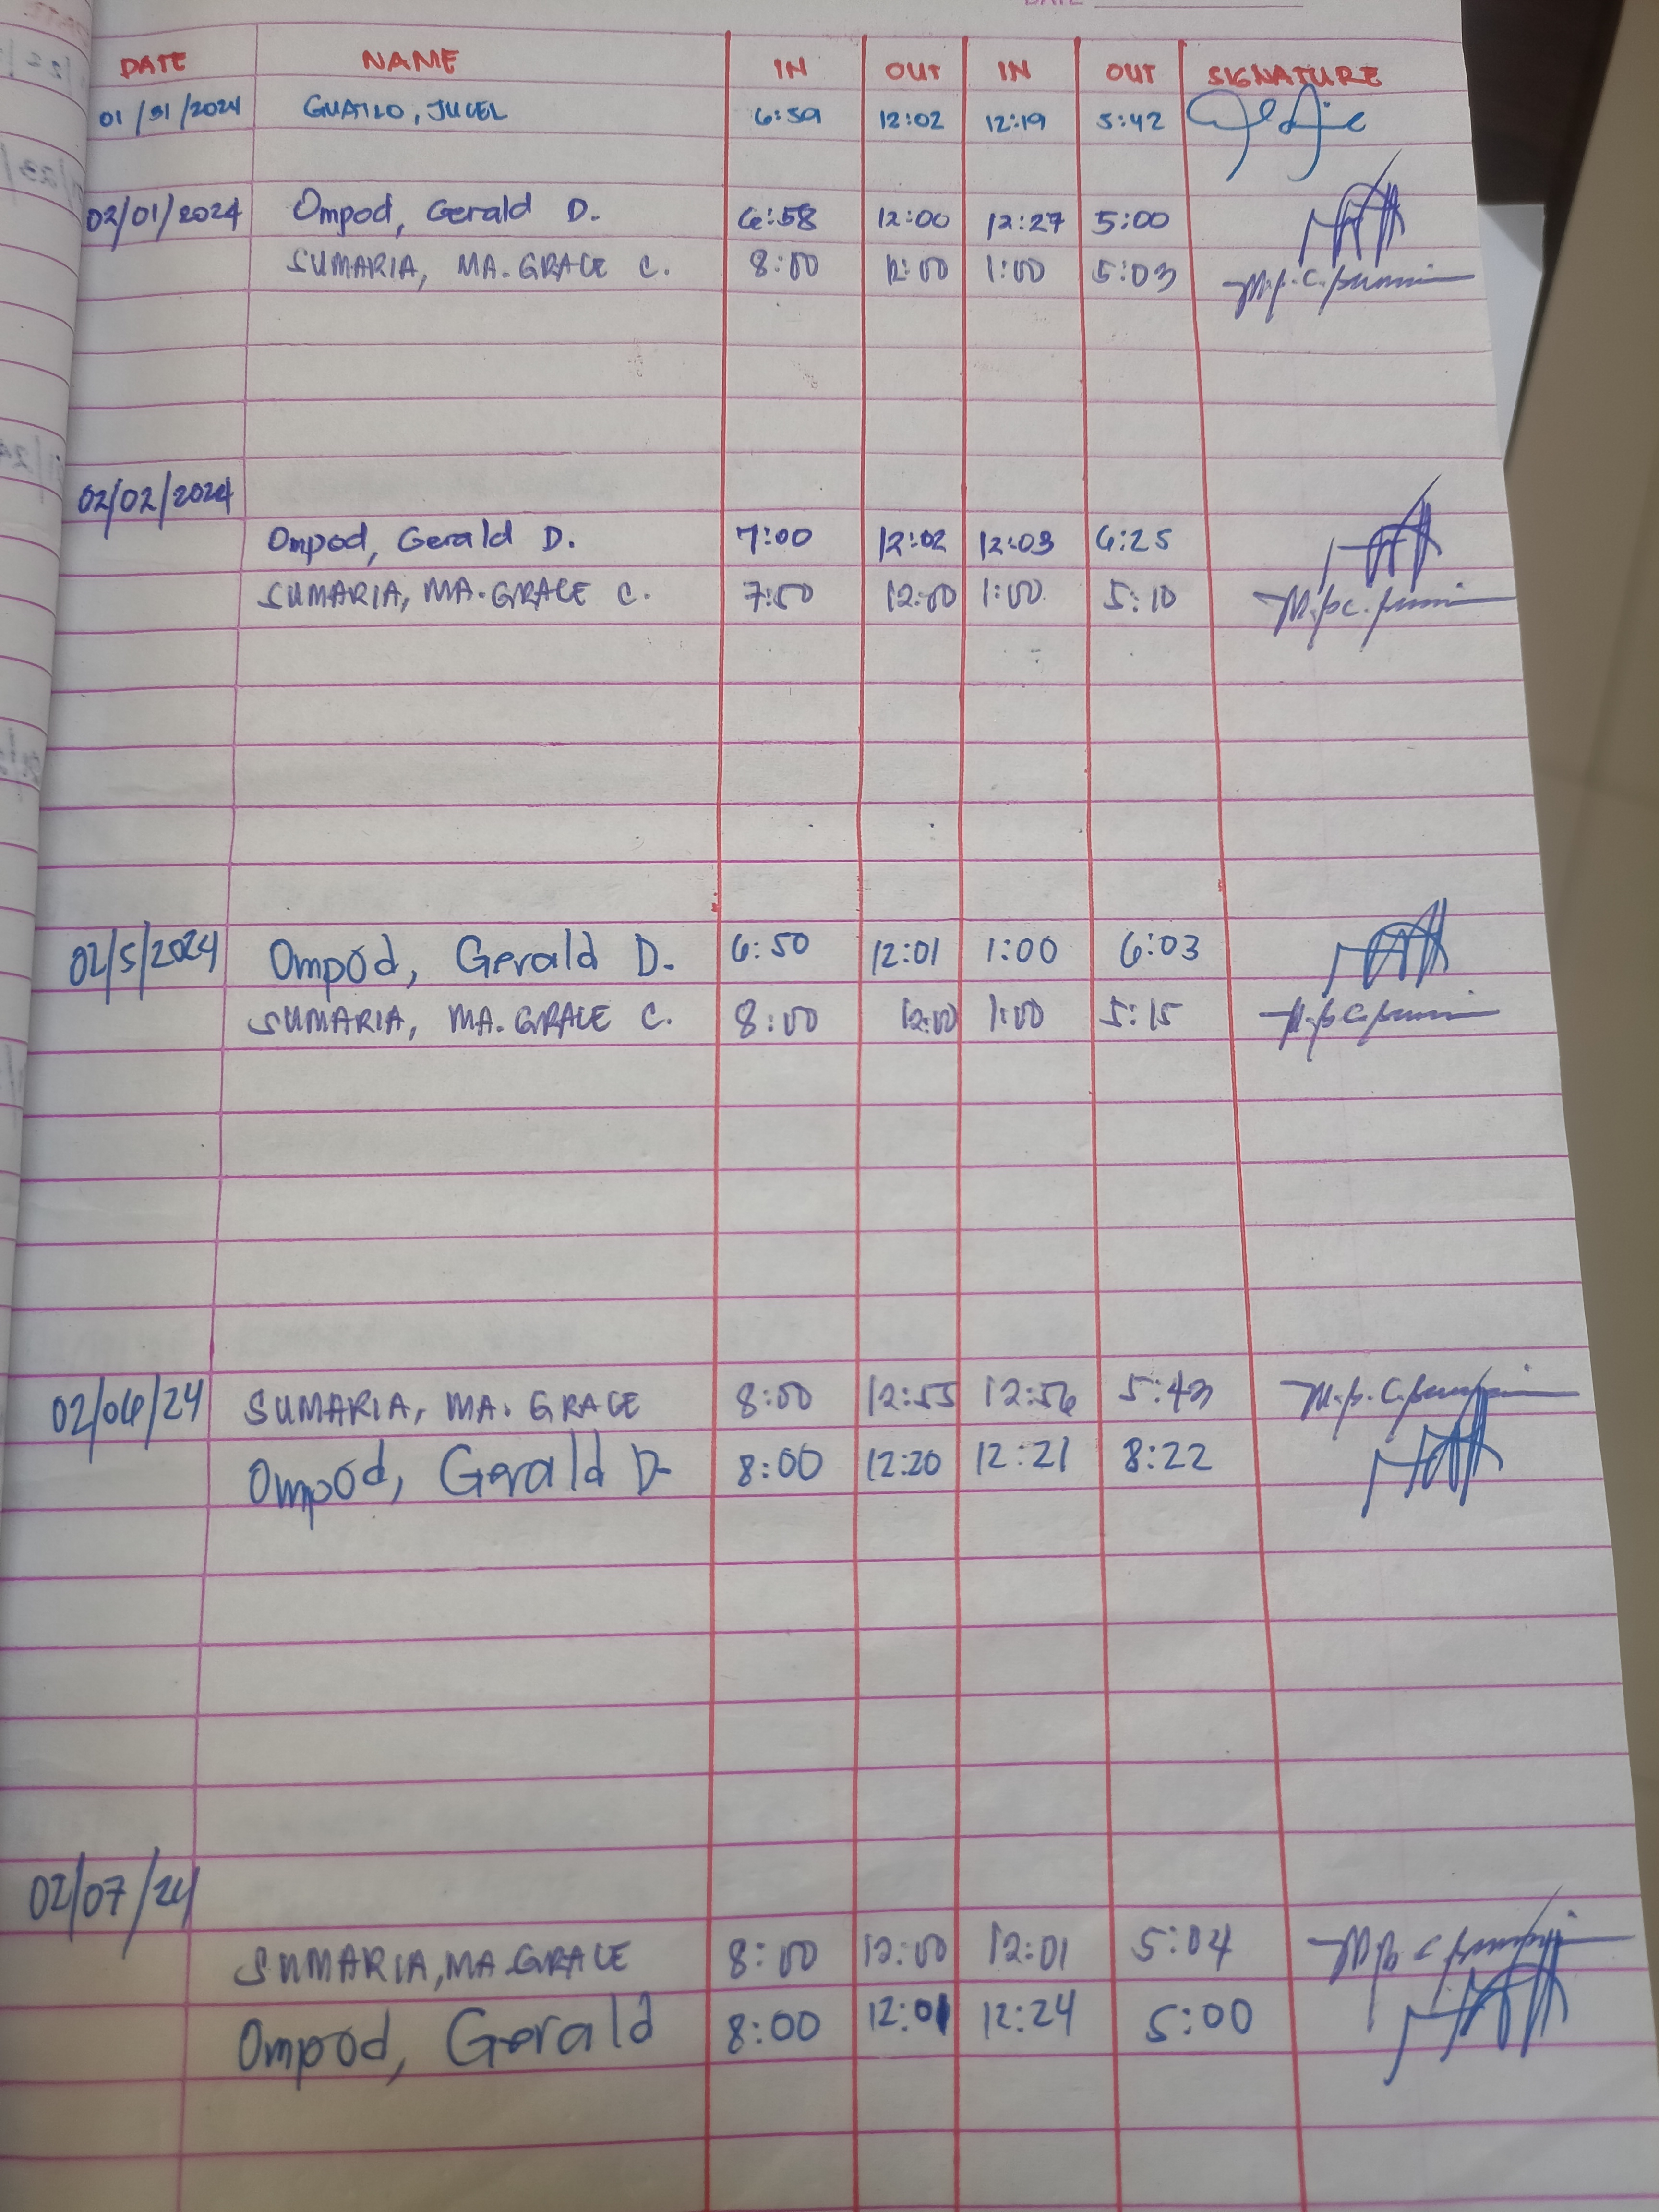 DATE
DATE NAME IN OUT IN OUT SIGNATURE
01/31/2024 GUATLO, JUCEL 6:59 12:02 12:19 5:42
02/01/2024 Ompod, Gerald D. 6:58 12:00 12:27 5:00
SUMARIA, MA. GRACE C. 8:00 12:00 1:00 5:03
02/02/2024
Ompod, Gerald D. 7:00 12:02 12:03 6:25
SUMARIA, MA. GRACE C. 7:50 12:00 1:00 5:10
02/5/2024 Ompod, Gerald D. 6:50 12:01 1:00 6:03
SUMARIA, MA. GRACE C. 8:00 12:00 1:00 5:15
02/06/24 SUMARIA, MA. GRACE 8:00 12:55 12:56 5:43
Ompod, Gerald D. 8:00 12:20 12:21 8:22
02/07/24
SUMARIA, MA. GRACE 8:00 12:00 12:01 5:04
Ompod, Gerald 8:00 12:01 12:24 5:00